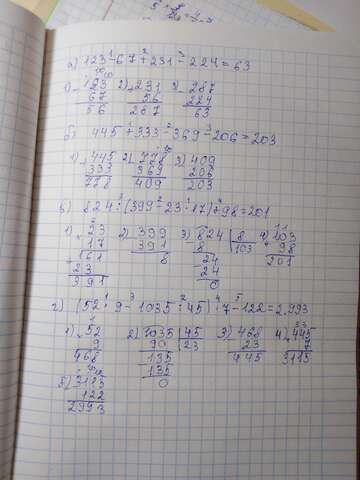 а) 123-67+231-224=63
1) 123 2) 231 3) 287
67 56 224
56 287 63
б) 445+333-369-206=203
1) 445 2) 778 3) 409
333 369 206
778 409 203
в) 824:(399-23·17)+98=201
1) 23 2) 399 3) 824 8 4) 103
17 391 8 103 98
161 8 24 201
23 24
391 0
г) (52·9-1035:45)·7-122=2.993
1) 52 2) 1035 45 3) 468 4) 445
9 90 23 23 7
468 135 445 3115
135
5) 3115 0
122
2993